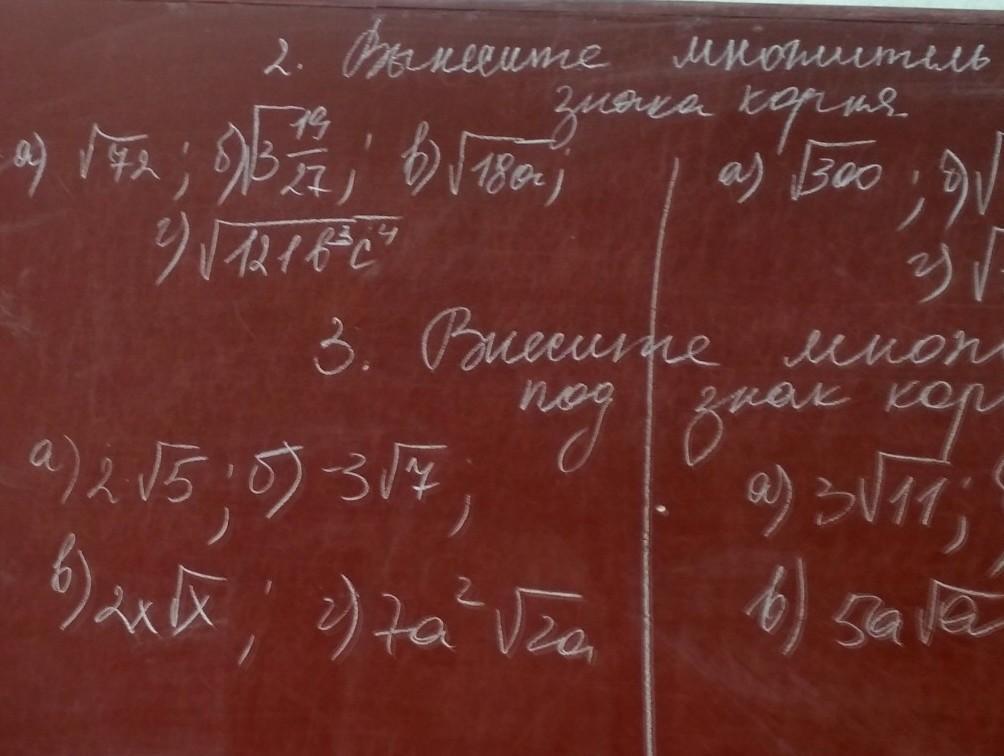 2. Вынесите множитель
знака корня
а) √72; б) √3 19/27; в) √18a; а) √300; б) √
г) √121b³c⁴ г) √
3. Внесите множ
под знак кор
а) 2√5; б) -3√7; а) 3√11;
в) 2x√x; г) 7a²√2a в) 5a√a